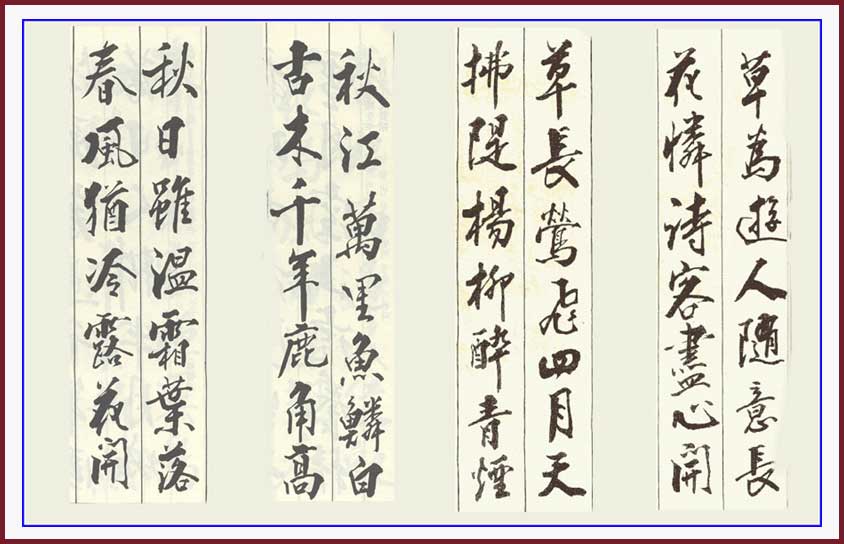 草為遊人隨意長
花憐诗客盡心開
草長鶯飛四月天
拂隄楊柳醉青煙
秋江萬里魚鱗白
古木千年鹿角高
秋日雖温霜葉落
春風猶冷露花開